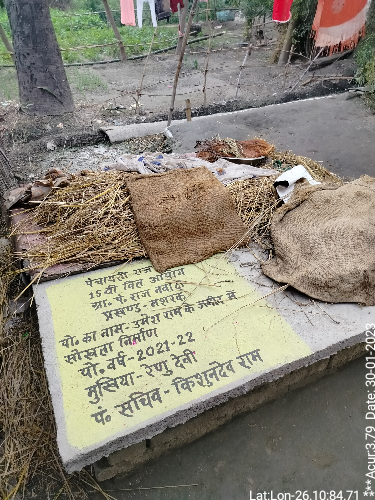 पंचायती राज
15वीं वित्त आयोग
ग्रा. पं. राज नवादा
प्रखण्ड- मशरक
यो. का नाम- उमेश राम के जमीन में
सोखता निर्माण
यो. वर्ष- 2021-22
मुखिया- रेणु देवी
पं. सचिव - किशुनदेव राम
Lat:Lon-26.10:84.71
***Acur:3.79 Date: 30-01-2023